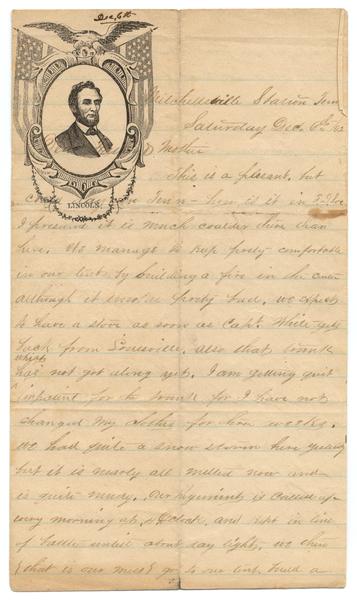 Dec. 6th
LINCOLN.
Mitchellsville Station Tenn
Saturday Dec. 6th /62
Mother
This is a pleasant, but
in Tenn - how is it in
I presume it is much coulder there than
here. We manage to keep prety comfortable
in our tent by building a fire in the
although it smokes prety bad, we expect
to have a stove as soon as Capt. White gets
back from Louisville, also that trunk
which
has not got along yet. I am getting quit
inpatient for the trunk for I have not
changed my clothes for two weeks.
We had quite a snow storm here
but it is nearly all melted now and
is quite muddy. Our regiment is called up
every morning at 4 O clock, and kept in line
of battle untill about day light, we then
(that is our mess) go to our tent, build a